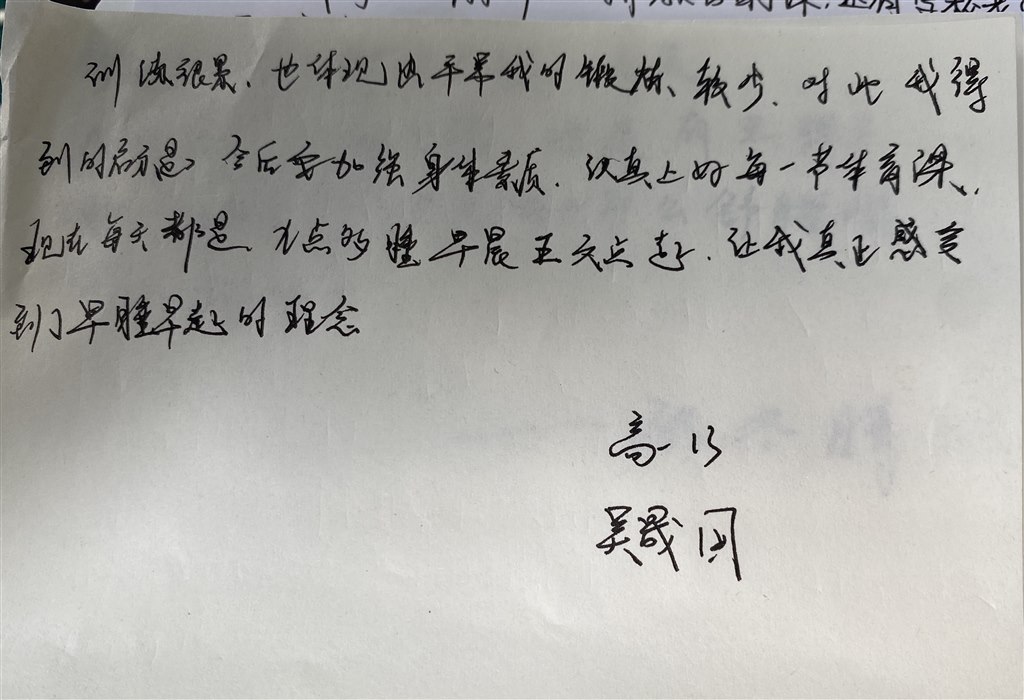 训练很累,也体现出平常我的锻炼较少,对此我得
到的启发是 今后要加强身体素质,认真上好每一节体育课,
现在每天都是九点多睡早晨五六点起,让我真正感受
到了早睡早起的理念
高一13
吴晟